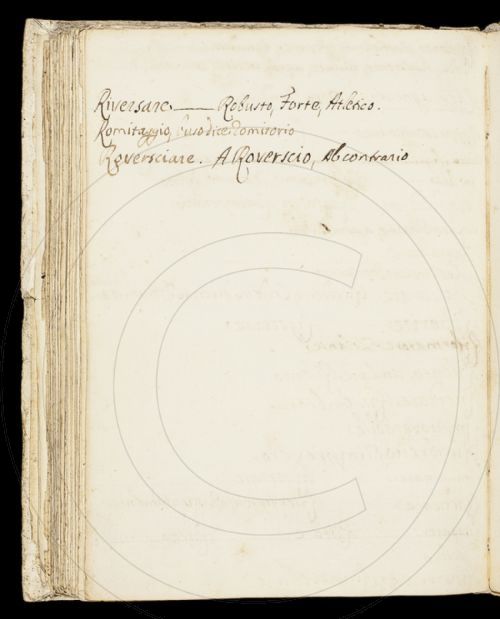 Riversare. —— Robusto, Forte, Atletico.
Romitaggio, Romitorio
Roversciare. A Roverscio, Al contrario